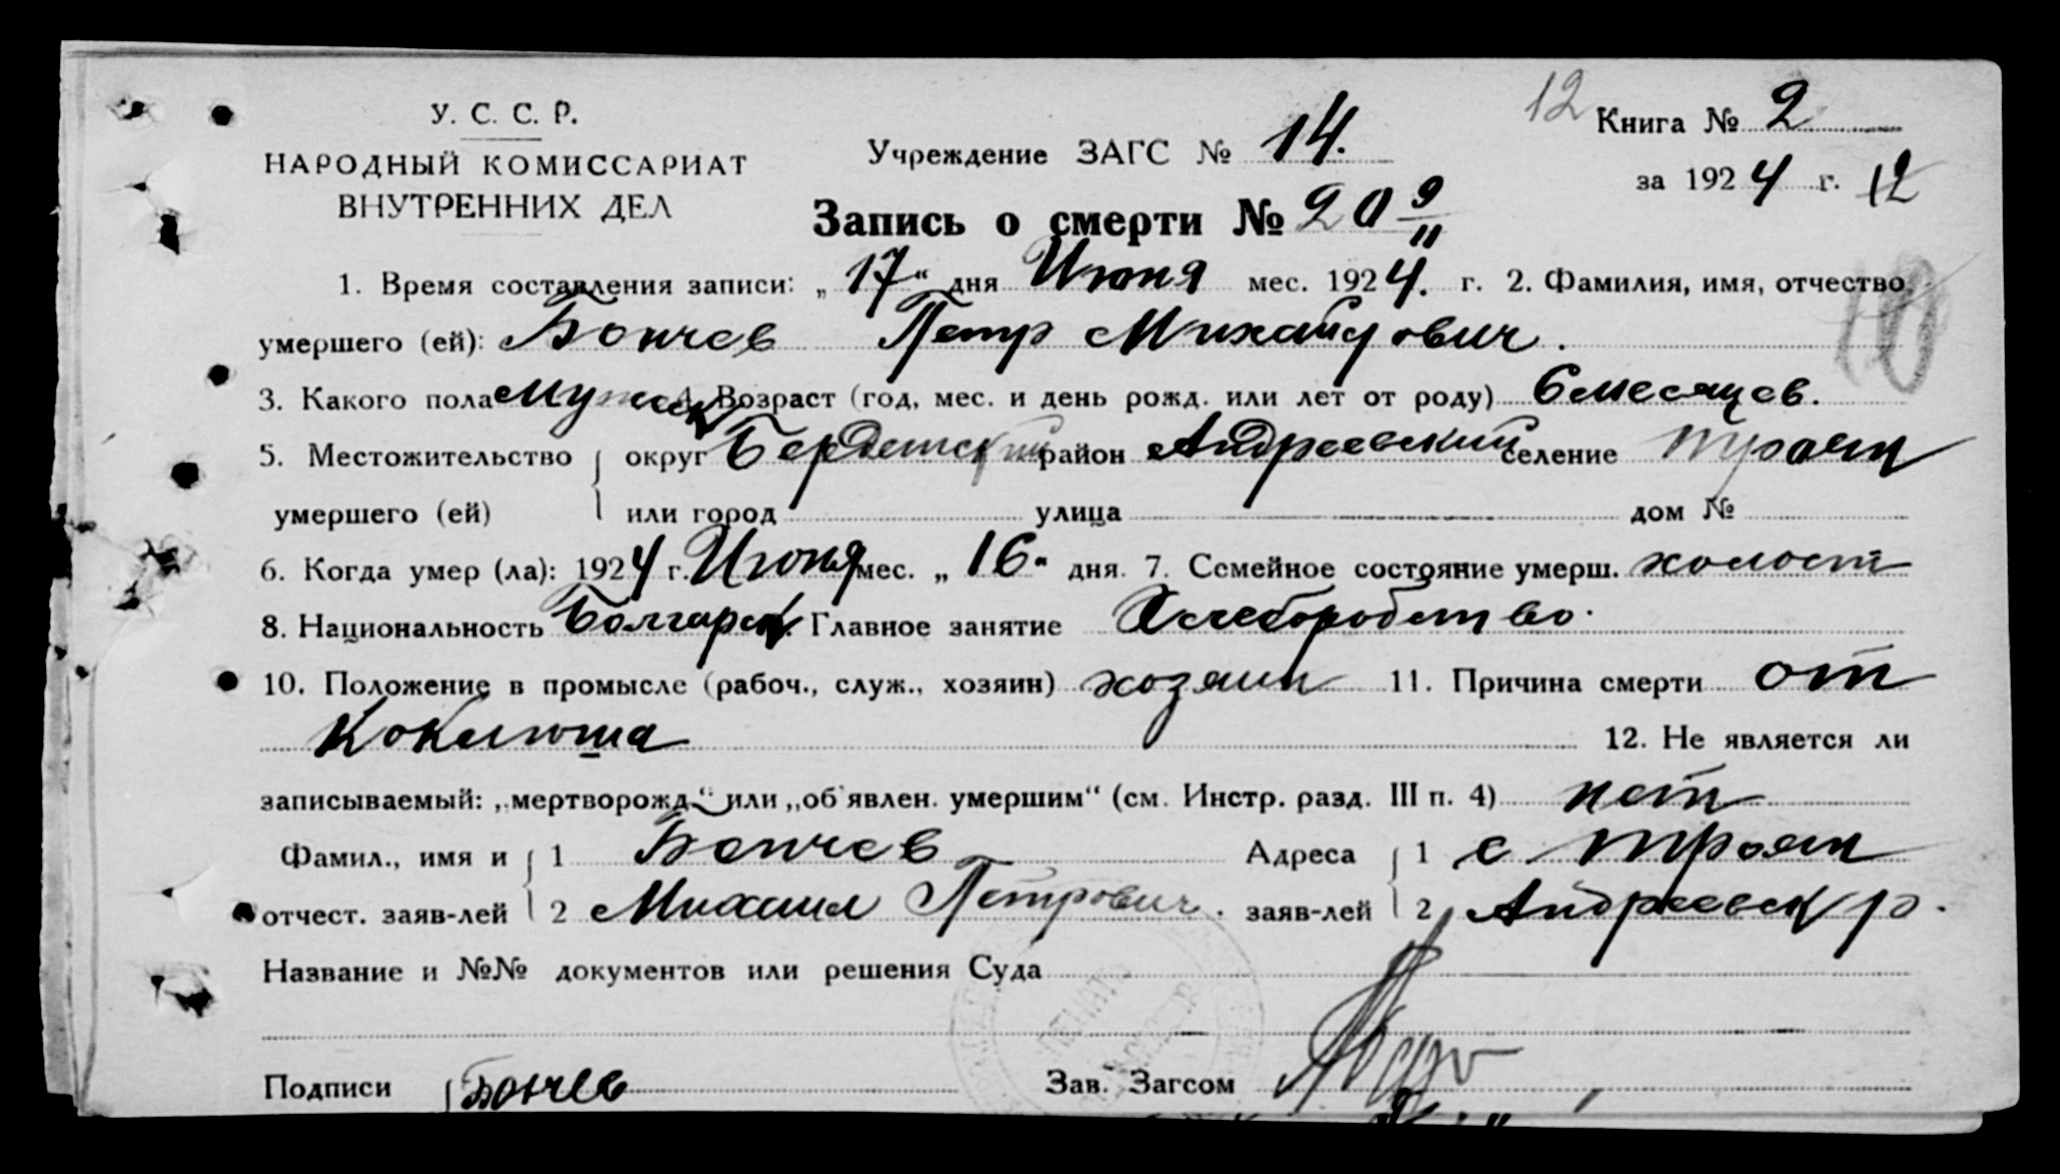 У. С. С. Р.
НАРОДНЫЙ КОМИССАРИАТ
ВНУТРЕННИХ ДЕЛ
Учреждение ЗАГС № 14.
12 Книга № 2
за 1924 г. 12
Запись о смерти № 209
1. Время составления записи: „17“ дня Июня мес. 1924. г. 2. Фамилия, имя, отчество
умершего (ей): Бончев Петр Михайлович.
3. Какого пола мужск 4. Возраст (год, мес. и день рожд. или лет от роду) 6 месяцев.
5. Местожительство округ Бердянский район Андреевский селение Троян
умершего (ей) или город улица дом №
6. Когда умер (ла): 1924 г. Июня мес. „16“ дня. 7. Семейное состояние умерш. холост
8. Национальность Болгарск. Главное занятие Хлеборобство.
10. Положение в промысле (рабоч., служ., хозяин) хозяин 11. Причина смерти от
Коклюша 12. Не является ли
записываемый: „мертворожд.“ или „об'явлен. умершим“ (см. Инстр. разд. III п. 4) нет
Фамил., имя и 1 Бончев Адреса 1 с Троян
отчест. заяв-лей 2 Михаил Петрович. заяв-лей 2 Андреевск р.
Название и №№ документов или решения Суда
Подписи Бончев Зав. Загсом